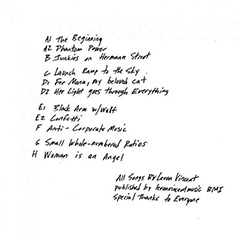 A1 The Beginning
A2 Phantom Power
B Junkies on Hermann Street
C Launch Ramp to the Sky
D1 For Mona, my beloved cat
D2 Her Light goes through Everything
E1 Black Arm w/Wolf
E2 Confetti
F Anti-Corporate Music
G Small Whole-numbered Ratios
H Woman is an Angel
All Songs By Loren Vincent
published by BMI
Special Thanks to Everyone